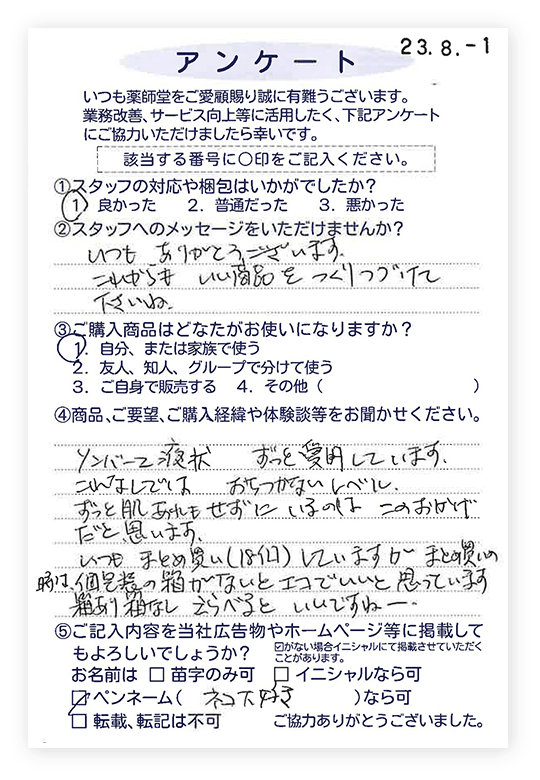 23.8.-1
アンケート
いつも薬師堂をご愛顧賜り誠に有難うございます。
業務改善、サービス向上等に活用したく、下記アンケート
にご協力いただけましたら幸いです。
該当する番号に〇印をご記入ください。
①スタッフの対応や梱包はいかがでしたか?
1 良かった 2. 普通だった 3. 悪かった
②スタッフへのメッセージをいただけませんか?
いつも ありがとうございます。
これからも いい商品を つくりつづけて
下さいね。
③ご購入商品はどなたがお使いになりますか?
1. 自分、または家族で使う
2. 友人、知人、グループで分けて使う
3. ご自身で販売する 4. その他( )
④商品、ご要望、ご購入経緯や体験談等をお聞かせください。
ソンバーユ液状 ずっと愛用しています。
これなしでは おちつかないレベル。
ずっと肌あれもせずに いるのは このおかげ
だと思います。
いつも まとめ買い(18個)していますが まとめ買いの
時は、個包装の箱がないとエコでいいと思っています
箱あり箱なし えらべると いいですねー。
⑤ご記入内容を当社広告物やホームページ等に掲載して
もよろしいでしょうか? ☑がない場合イニシャルにて掲載させていただく
ことがあります。
お名前は □ 苗字のみ可 □ イニシャルなら可
☑ペンネーム( ネコ大好き )なら可
□ 転載、転記は不可 ご協力ありがとうございました。